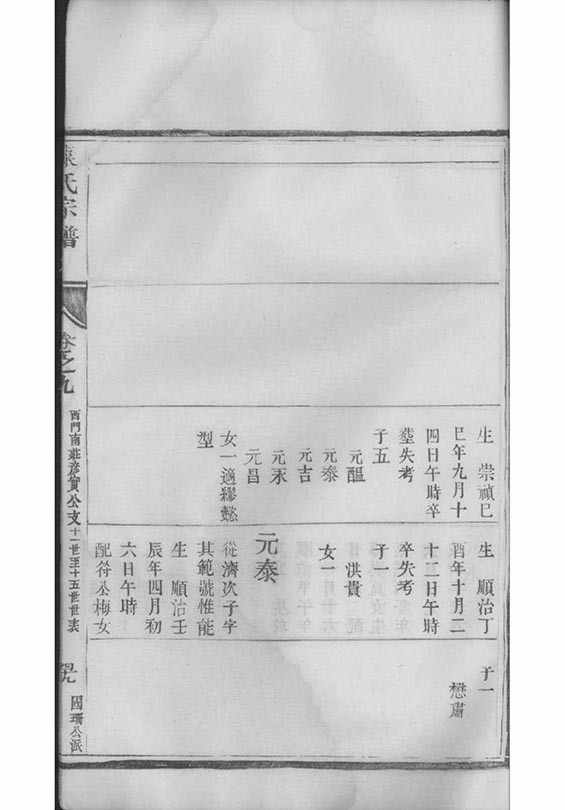 生 崇禎己
巳年九月十
四日午時卒
塟失考
子五
元醖
元泰
元吉
元永
元昌
女一適繆懿
型
生 順治丁
酉年十月二
十二日午時
卒失考
子一
洪貴
女一
元泰
從濟次子字
其範號惟能
生 順治壬
辰年四月初
六日午時
配符公梅女
子一
懋肅
氏宗譜
卷之九
西門南莊彥賓公支十一世至十五世世表
國珊公派